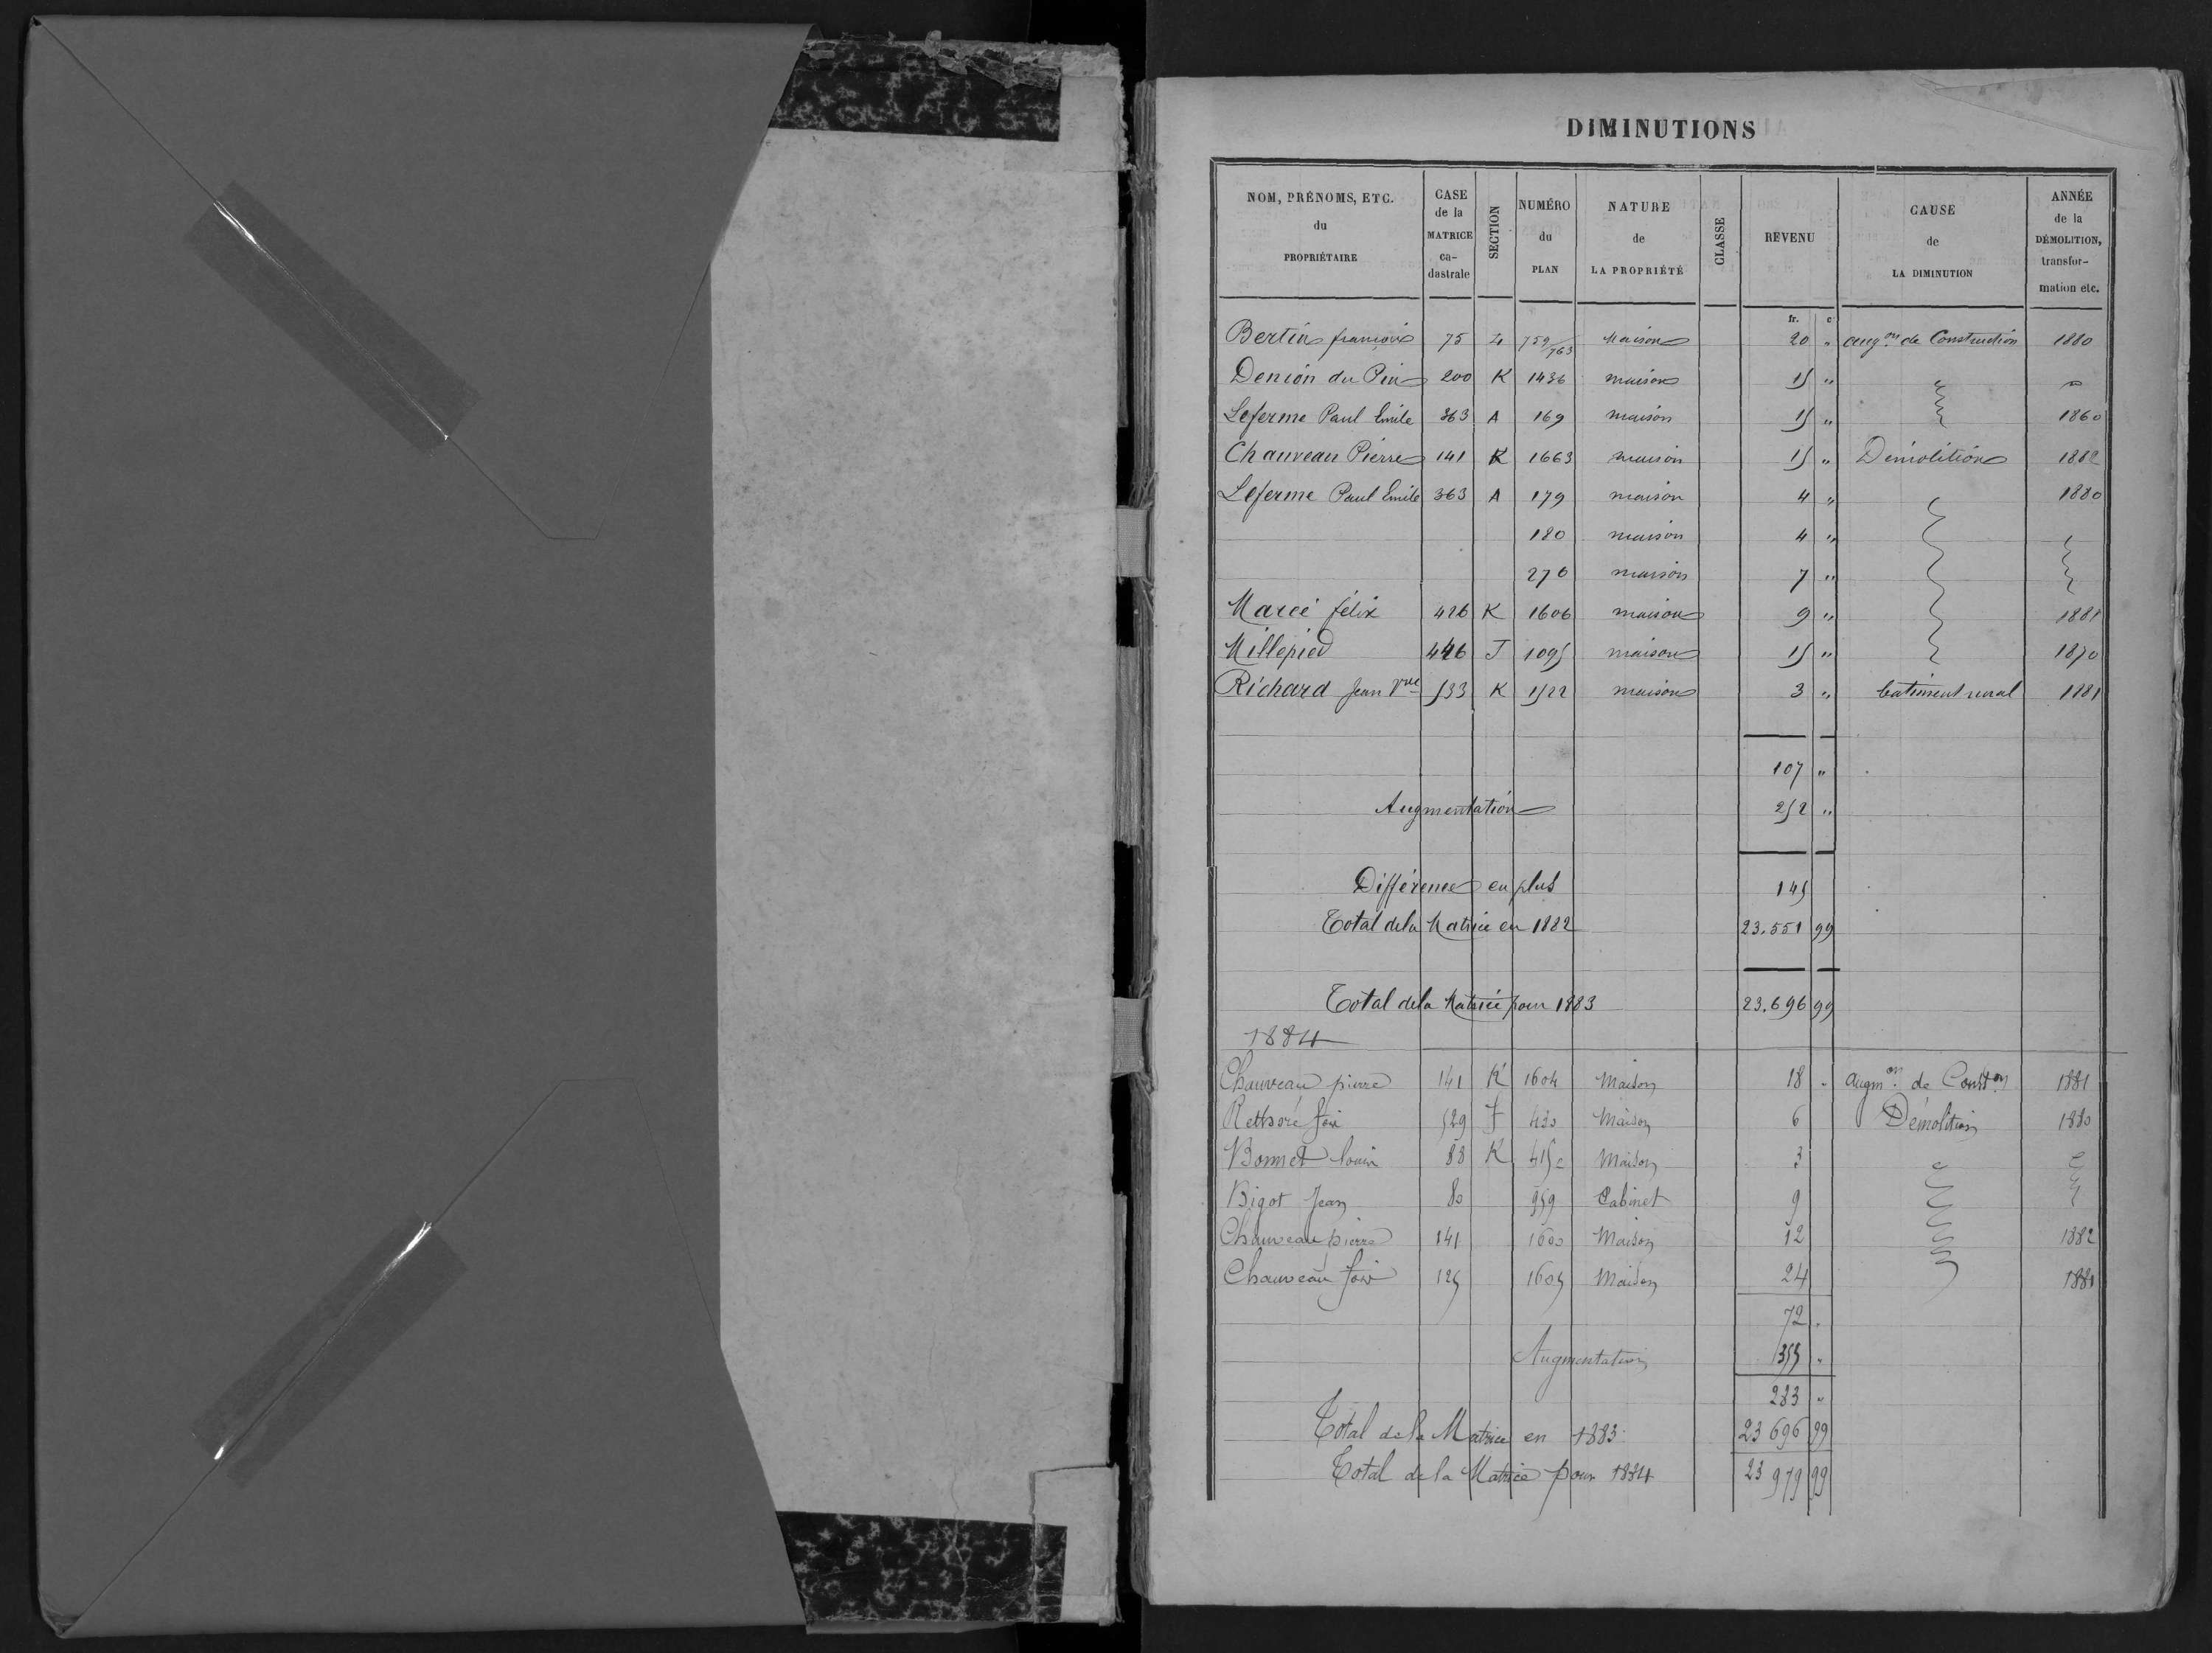 DIMINUTIONS
NOM, PRÉNOMS, ETC. du PROPRIÉTAIRE | CASE de la MATRICE ca-dastrale | SECTION | NUMÉRO du PLAN | NATURE de LA PROPRIÉTÉ | CLASSE | REVENU | CAUSE de LA DIMINUTION | ANNÉE de la DÉMOLITION, transfor-mation etc.
fr. c
Bertin françois 75 759/763 Maison 20 " augon de Construction 1880
Denion du Pin 200 K 1436 maison 15 "
Leferme Paul Emile 363 A 169 maison 15 " 1860
Chauveau Pierre 141 K 1663 maison 15 " Démolition 1882
Leferme Paul Emile 363 A 179 maison 4 " 1880
180 maison 4 "
270 maison 7 "
Marcé félix 426 K 1606 maison 9 " 1881
Millepied 446 J 1095 maison 15 " 1870
Richard Jean Vve 533 K 1522 maison 3 " batiment rural 1881
107 "
Augmentation 252 "
Différence en plus 145
Total de la Matrice en 1882 23.551 99
Total de la Matrice pour 1883 23.696 99
1884
Chauveau pierre 141 K 1604 Maison 18 " augmon de Conston 1881
529 J 430 Maison 6 Démolition 1880
Bonnet louis 88 K 415 Maison 3
Bigot Jean 80 959 Cabinet 9
Chauveau pierre 141 1600 Maison 12 1882
Chauveau 125 1605 Maison 24 1881
72 "
Augmentation 355 "
283 "
Total de la Matrice en 1883 23 696 99
Total de la Matrice pour 1884 23 979 99